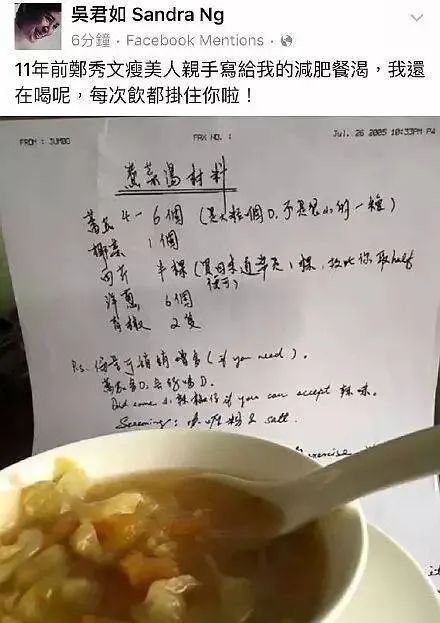 吳君如 Sandra Ng
6分鐘 · Facebook Mentions ·
11年前鄭秀文瘦美人親手寫給我的減肥餐渴，我還
在喝呢，每次飲都掛住你啦！
FROM : JUMBO FAX NO. : Jul. 26 2005 10:33PM P4
菜湯材料
蕃茄 4-6個 (是大粒個D，不是小的一種)
椰菜 1個
西芹 半棵 (買回來通常1棵，故此你取half
便可)
洋蔥 6個
青椒 2隻
P.s. 份量可稍稍增多 (if you need).
蕃茄多D，會好喝D.
some 小辣椒仔 if you can accept 辣味.
椒粉 & salt.
exercise